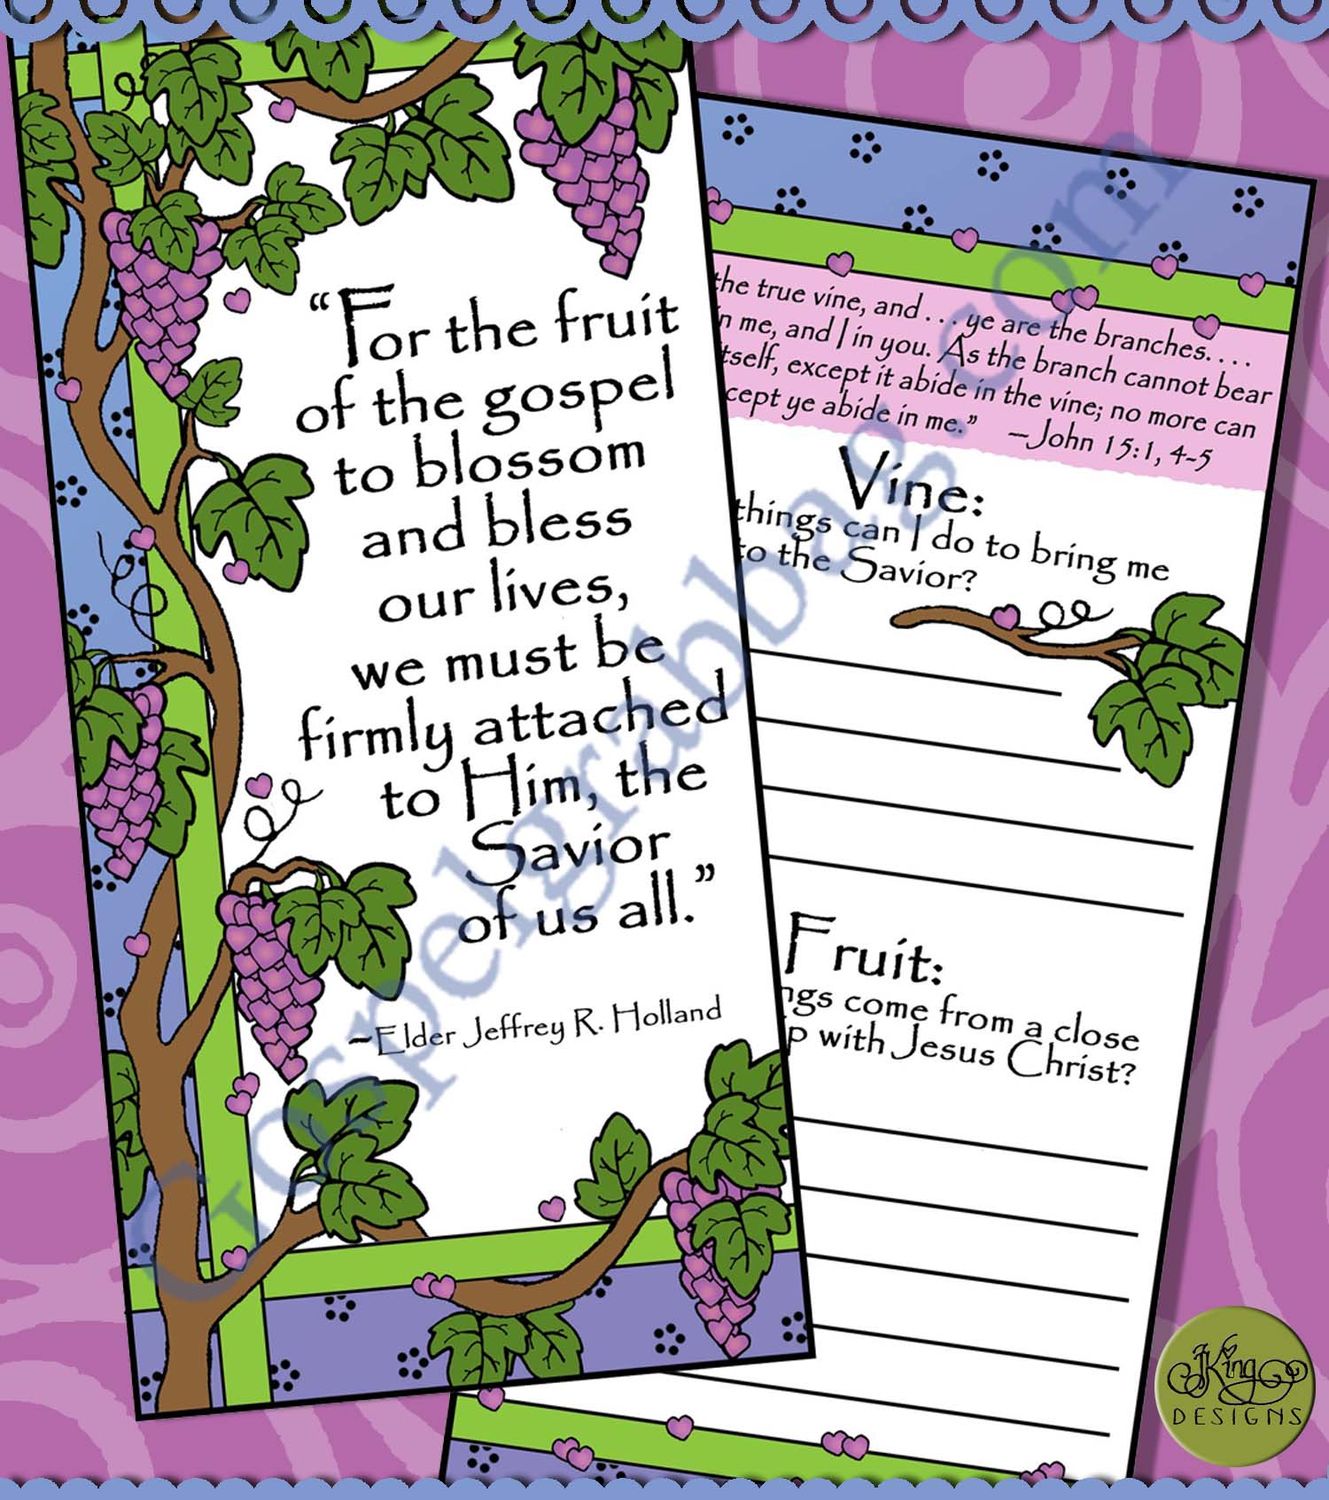 “For the fruit
of the gospel
to blossom
and bless
our lives,
we must be
firmly attached
to Him, the
Savior
of us all.”
~Elder Jeffrey R. Holland
the true vine, and . . . ye are the branches. . . .
in me, and I in you. As the branch cannot bear
itself, except it abide in the vine; no more can
cept ye abide in me.” ~John 15:1, 4-5
Vine:
things can I do to bring me
to the Savior?
Fruit:
ngs come from a close
p with Jesus Christ?
Gospelgrabbag.com
JKing
DESIGNS